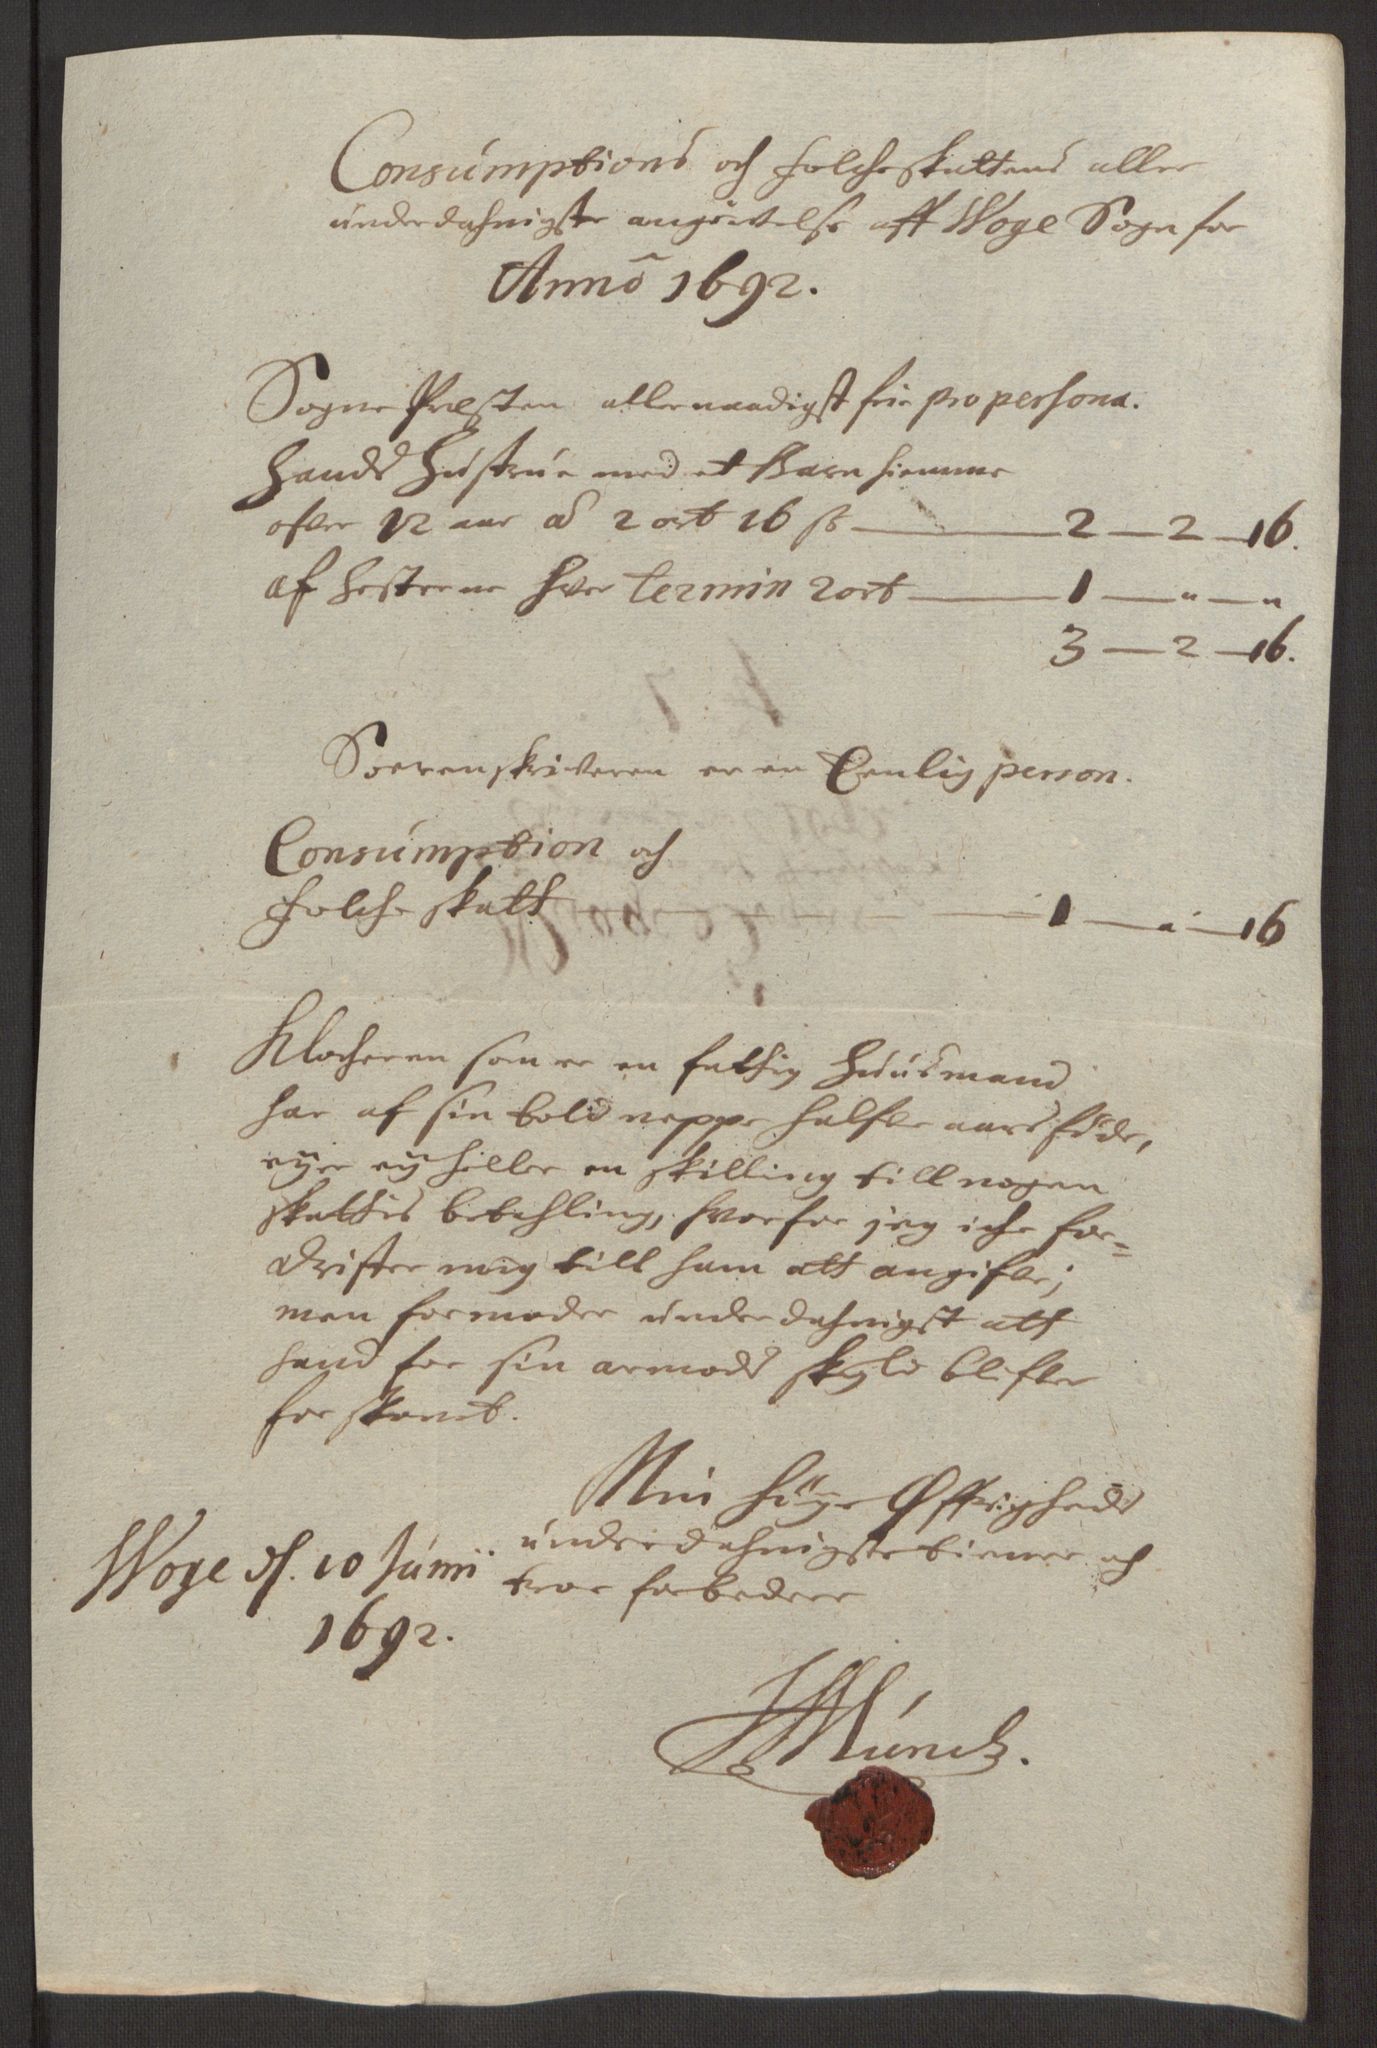 Consumptions och folcheskattens aller
underdahnigste angivelse aff Woge Sogn for
Anno 1692.
Sogne Præsten allernaadigst frie pro persona.
Hands Hustrue med et Barn hiemme
ofver 12 aar à 2 ort 16 s 2 – 2 – 16.
af hesterne hver termin 2 ort 1 – " – "
3 – 2 – 16.
Sorrenskriveren er en Eenlig person.
Consumption och
folche skatt 1 – " – 16
Klocheren som er en fathig huusmand
har af sin bold neppe halfve aars föde,
eyer ey heller en skilling till nogen
skattis betahling, hvorfor jeg iche for=
drister mig till ham att angifve;
men formoder underdahnigst att
hand for sin armods skyld blifver
forskont.
Min höye Øffrigheds
underdahnigste tiener och
troe forbedere
Woge d. 10 Junii
1692.
Munck.